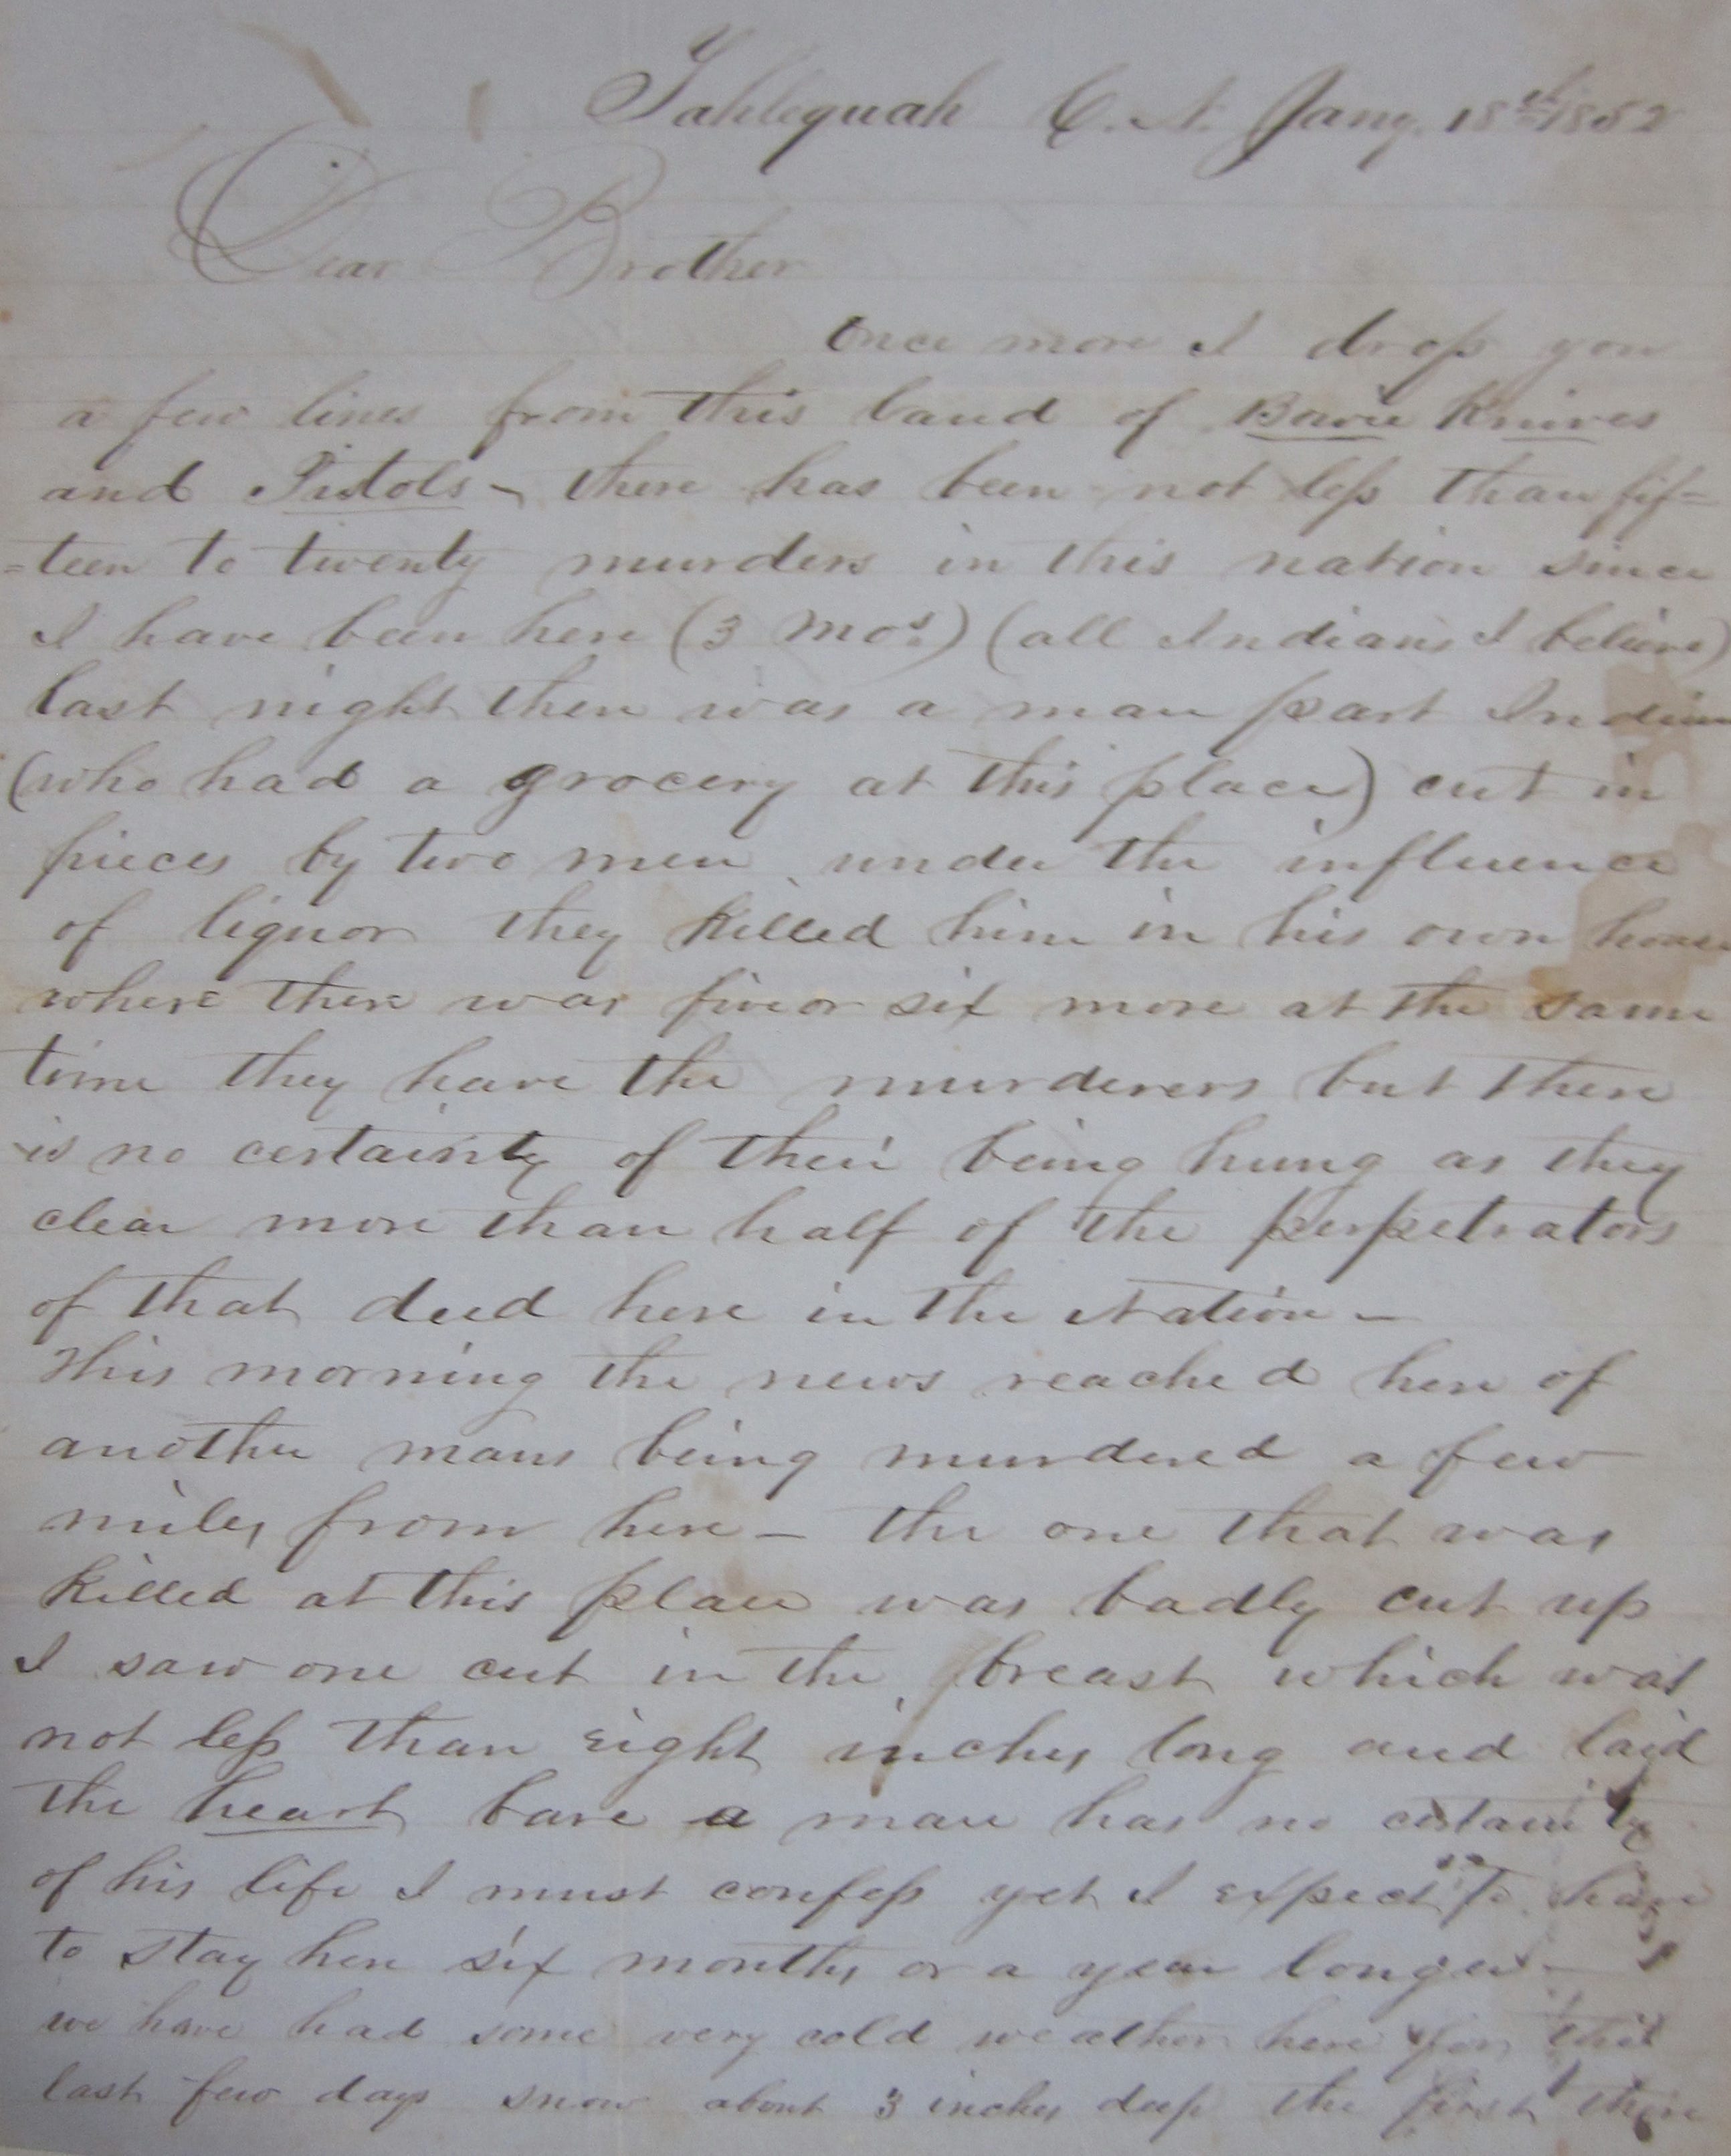 Tahlequah C. N. Jany. 18th 1852
Dear Brother
Once more I drop you
a few lines from this land of Bowie Knives
and Pistols - there has been not less than fif=
=teen to twenty murders in this nation since
I have been here (3 mos.) (all Indians I believe)
last night there was a man part Indian
(who had a grocery at this place) cut in
pieces by two men under the influence
of liquor they killed him in his own house
where there was five or six more at the same
time they have the murderers but there
is no certainty of their being hung as they
clear more than half of the perpetrators
of that deed here in the Nation -
This morning the news reached here of
another mans being murdered a few
miles from here - the one that was
killed at this place was badly cut up
I saw one cut in the breast which was
not less than eight inches long and laid
the heart bare a man has no certainty
of his life I must confess yet I expect to have
to stay here six months or a year longer -
we have had some very cold weather here for this
last few days snow about 3 inches deep the first there